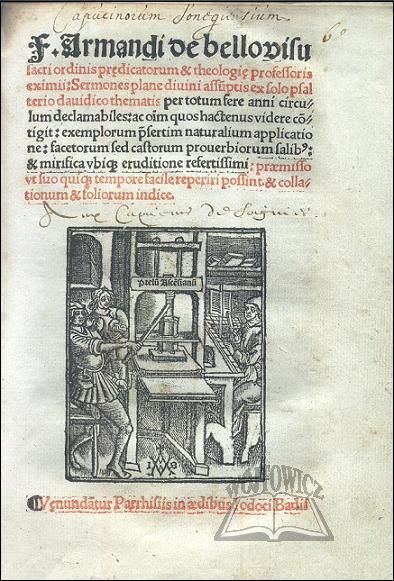 Capucinorum Sonegiensium
F. Armandi de bellovisu
sacri ordinis prędicatorum & theologię professoris
eximii: Sermones plane diuini assūptis ex solo psal
terio dauidico thematis per totum fere anni circu/
lum declamabiles: ac oīm quos hactenus videre cō/
tigit: exemplorum p̄sertim naturalium applicatio
ne: facetorum sed castorum prouerbiorum salib⁹:
& mirifica vbiq; eruditione refertissimi: præmisso
vt suo quicq; tempore facile reperiri possint & colla-
tionum & foliorum indice.
Aux Capucins de
Prelū Ascēsianū
Venundātur Parrhisiis in ædibus Iodoci Badii
WÓJTOWICZ